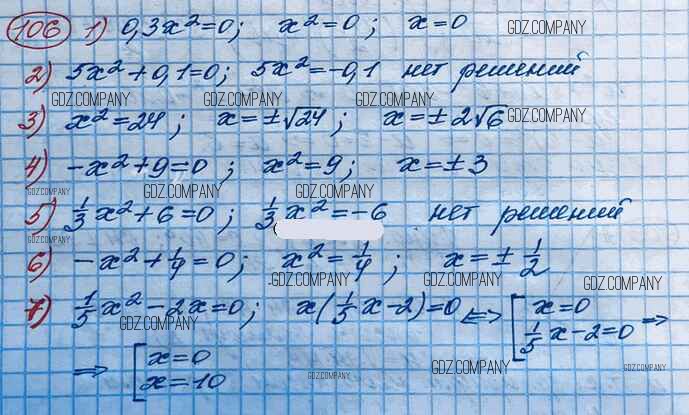 106 1) 0,3x²=0; x²=0; x=0 GDZ.COMPANY
2) 5x²+0,1=0; 5x²=-0,1 нет решений
GDZ.COMPANY GDZ.COMPANY GDZ.COMPANY
3) x²=24; x=±√24; x=±2√6 GDZ.COMPANY
4) -x²+9=0; x²=9; x=±3
GDZ.COMPANY GDZ.COMPANY GDZ.COMPANY
5) 1/3 x²+6=0; 1/3 x²=-6 нет решений
GDZ.COMPANY
6) -x²+1/4=0; x²=1/4; x=±1/2
GDZ.COMPANY GDZ.COMPANY GDZ.COMPANY
7) 1/5 x²-2x=0; x(1/5 x-2)=0 <=> [x=0
1/5 x-2=0 =>
GDZ.COMPANY
=> [x=0
x=10
GDZ.COMPANY GDZ.COMPANY GDZ.COMPANY